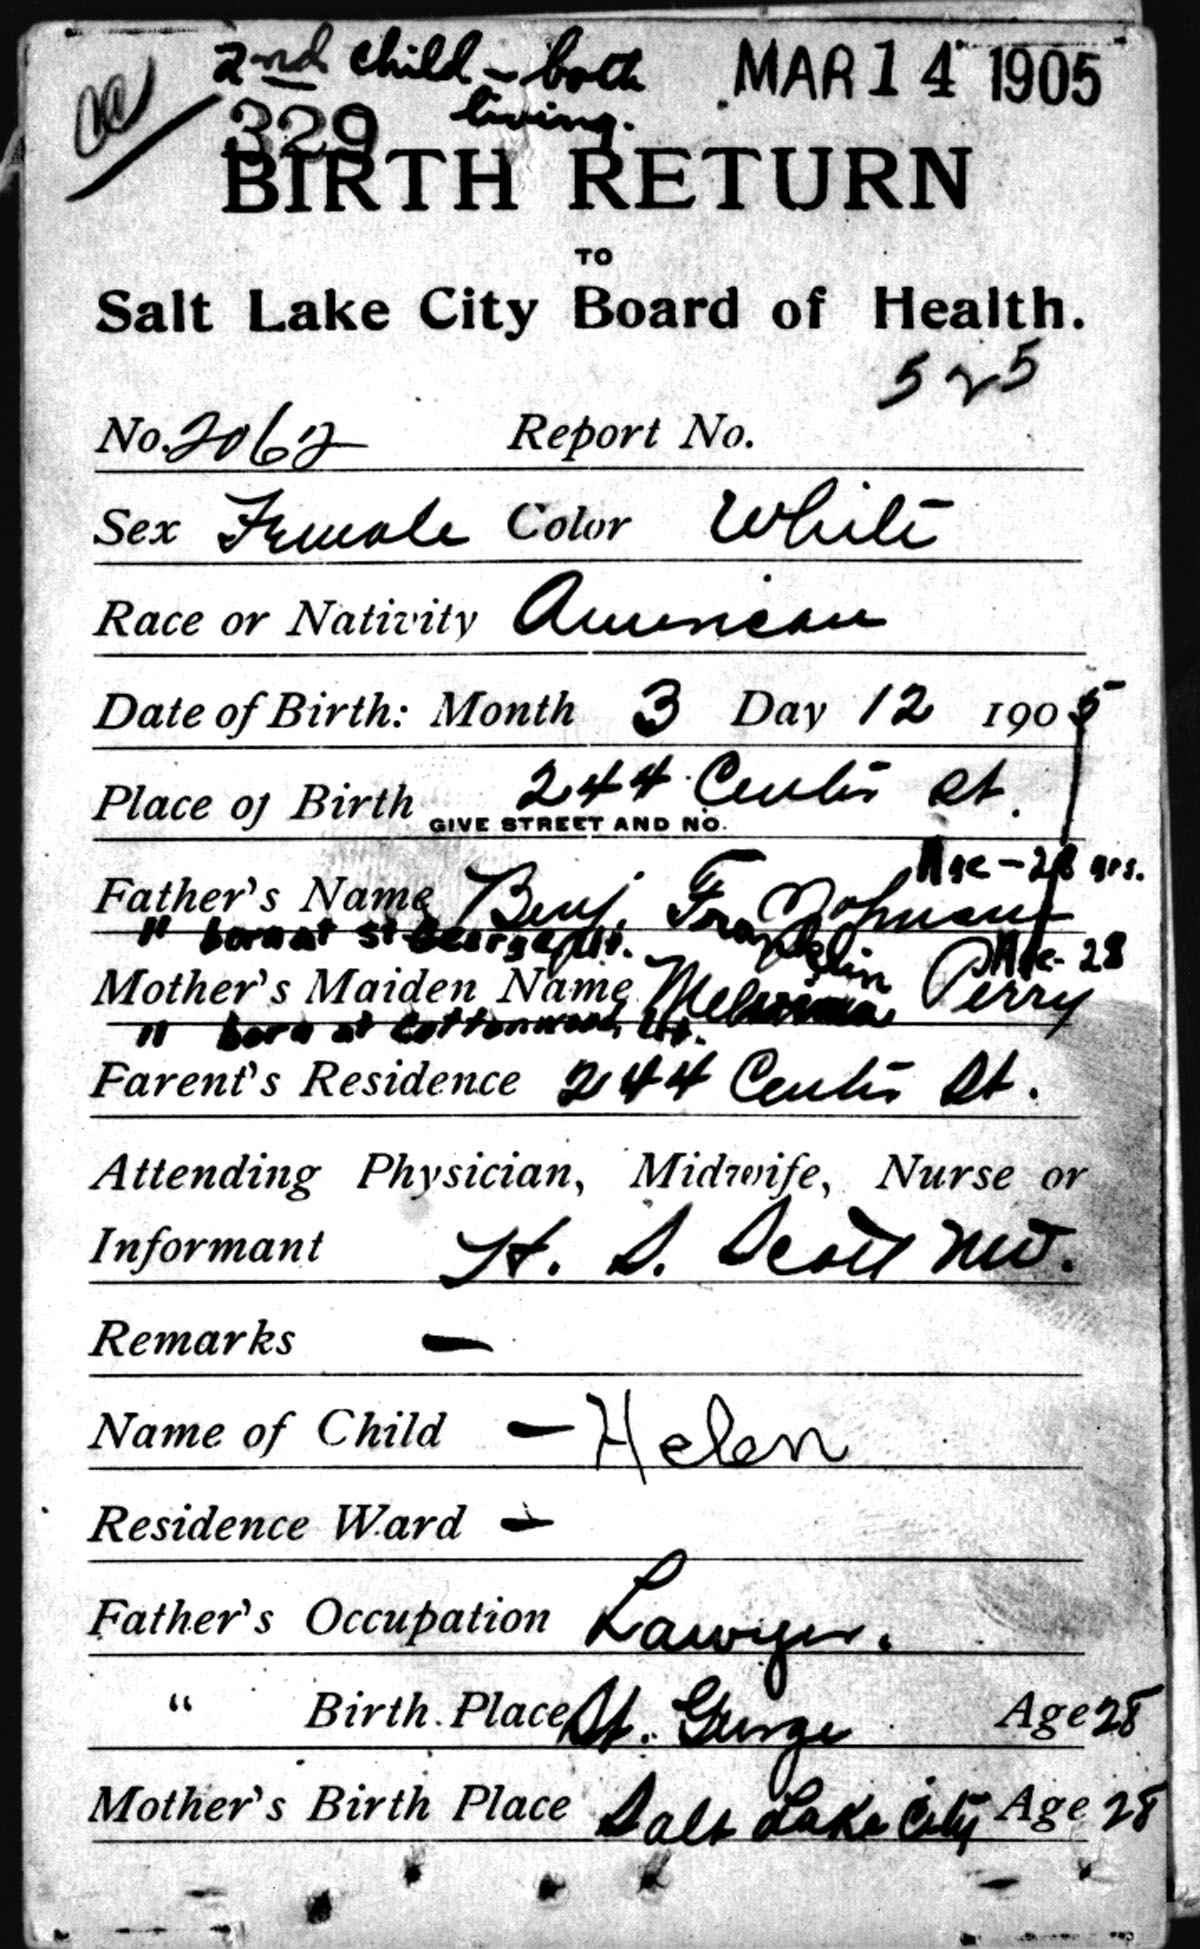 2nd child - both MAR 14 1905
living.
329
BIRTH RETURN
TO
Salt Lake City Board of Health.
525
No. 2062 Report No.
Sex Female Color White
Race or Nativity American
Date of Birth: Month 3 Day 12 1905
Place of Birth 244 Center St.
GIVE STREET AND NO.
Age - 28 yrs.
Father's Name Benj. F. Johnson
Franklin
" born at St George, Ut.
Age - 28
Mother's Maiden Name Perry
" born at Cottonwood, Ut.
Parent's Residence 244 Center St.
Attending Physician, Midwife, Nurse or
Informant H. S. Scott MD.
Remarks —
Name of Child — Helen
Residence Ward —
Father's Occupation Lawyer.
" Birth Place St. George Age 28
Mother's Birth Place Salt Lake City Age 28